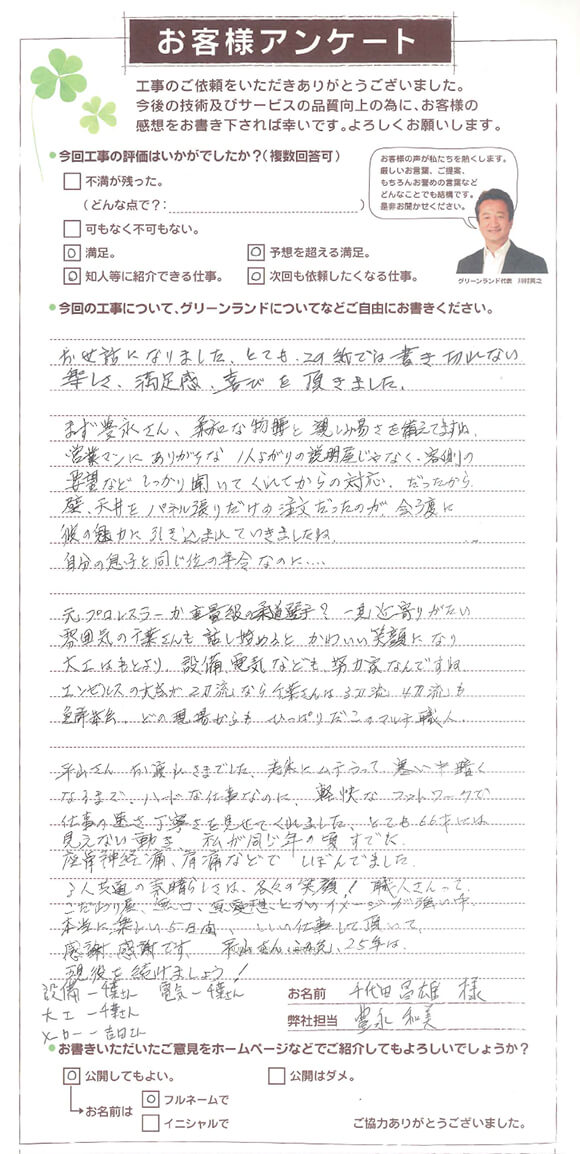 お客様アンケート
工事のご依頼をいただきありがとうございました。
今後の技術及びサービスの品質向上の為に、お客様の
感想をお書き下されば幸いです。よろしくお願いします。
今回工事の評価はいかがでしたか?(複数回答可)
不満が残った。
(どんな点で?: )
可もなく不可もない。
満足。
予想を超える満足。
知人等に紹介できる仕事。
次回も依頼したくなる仕事。
お客様の声が私たちを熱くします。
厳しいお言葉、ご提案、
もちろんお誉めの言葉など
どんなことでも結構です。
是非お聞かせください。
グリーンランド代表
今回の工事について、グリーンランドについてなどご自由にお書きください。
お世話になりました、とても、この紙では書き切れない
楽しさ、満足感、喜びを頂きました。
まず豊永さん、柔和な物腰と親しみ易さを備えてますね、
営業マンにありがちな1人よがりの説明屋じゃなく、客側の
要望などしっかり聞いてくれてからの対応、だったから
壁、天井をパネル張りだけの注文だったのが会う度に
彼の魅力に引き込まれていきましたね、
自分の息子と同じ位の年令なのに....
元プロレスラーか重量級の柔道選手?一見近寄りがたい
雰囲気の千葉さんも話し始めるとかわいい笑顔になり
大工はもとより、設備、電気なども、努力家なんですね
エンゼルスの大谷が2刀流なら千葉さんは3刀流4刀流も
免許皆伝、どの現場からもひっぱりだこのマルチ職人、
平山さんお疲れさまでした、老体にムチうって寒い中暗く
なるまで、ハードな仕事なのに、軽快なフットワークで
仕事の速さ、丁寧さを見せてくれました、とても66才には
見えない動き、私が同じ年の頃すでに
座骨神経痛、肩痛などでしぼんでました、
3人共通の素晴らしさは、各々の笑顔!職人さんって、
こだわり屋、無口、無愛想、とかのイメージが強い中
本当に楽しい5日間、いい仕事して頂いて、
感謝感謝です、平山さん、25年は、
現役を続けましょう!
設備ー千葉さん 電気ー千葉さん
大工ー千葉さん
お名前 千代田昌雄 様
弊社担当 豊永和美
お書きいただいたご意見をホームページなどでご紹介してもよろしいでしょうか?
公開してもよい。
公開はダメ。
お名前は
フルネームで
イニシャルで
ご協力ありがとうございました。